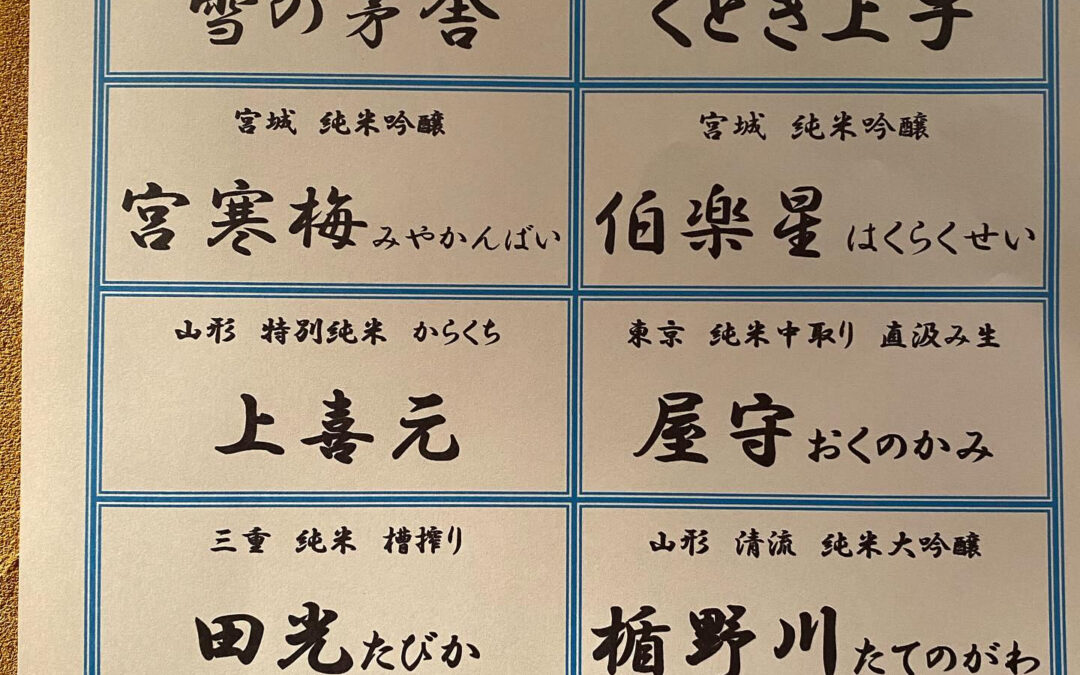 雪の茅舎
くどき上手
宮城 純米吟醸
宮寒梅みやかんばい
宮城 純米吟醸
伯楽星はくらくせい
山形 特別純米 からくち
上喜元
東京 純米中取り 直汲み生
屋守おくのかみ
三重 純米 槽搾り
田光たびか
山形 清流 純米大吟醸
楯野川たてのがわ